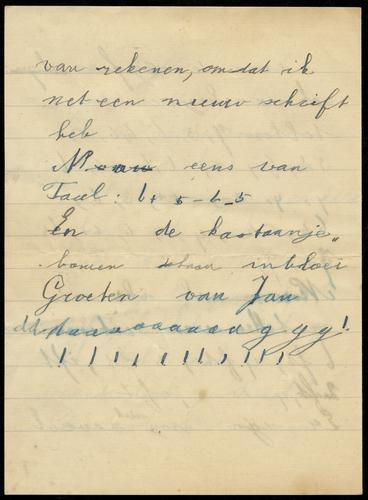 van rekenen, omdat ik
net een nieuw schrift
heb
eens van
Taal: 6 + 5 - 6 - 5
En de kastanje„
bomen staan in bloei
Groeten van Jan
dd daaaaaaaaaagggg!
! ! ! ! ! ! ! ! ! ! ! !